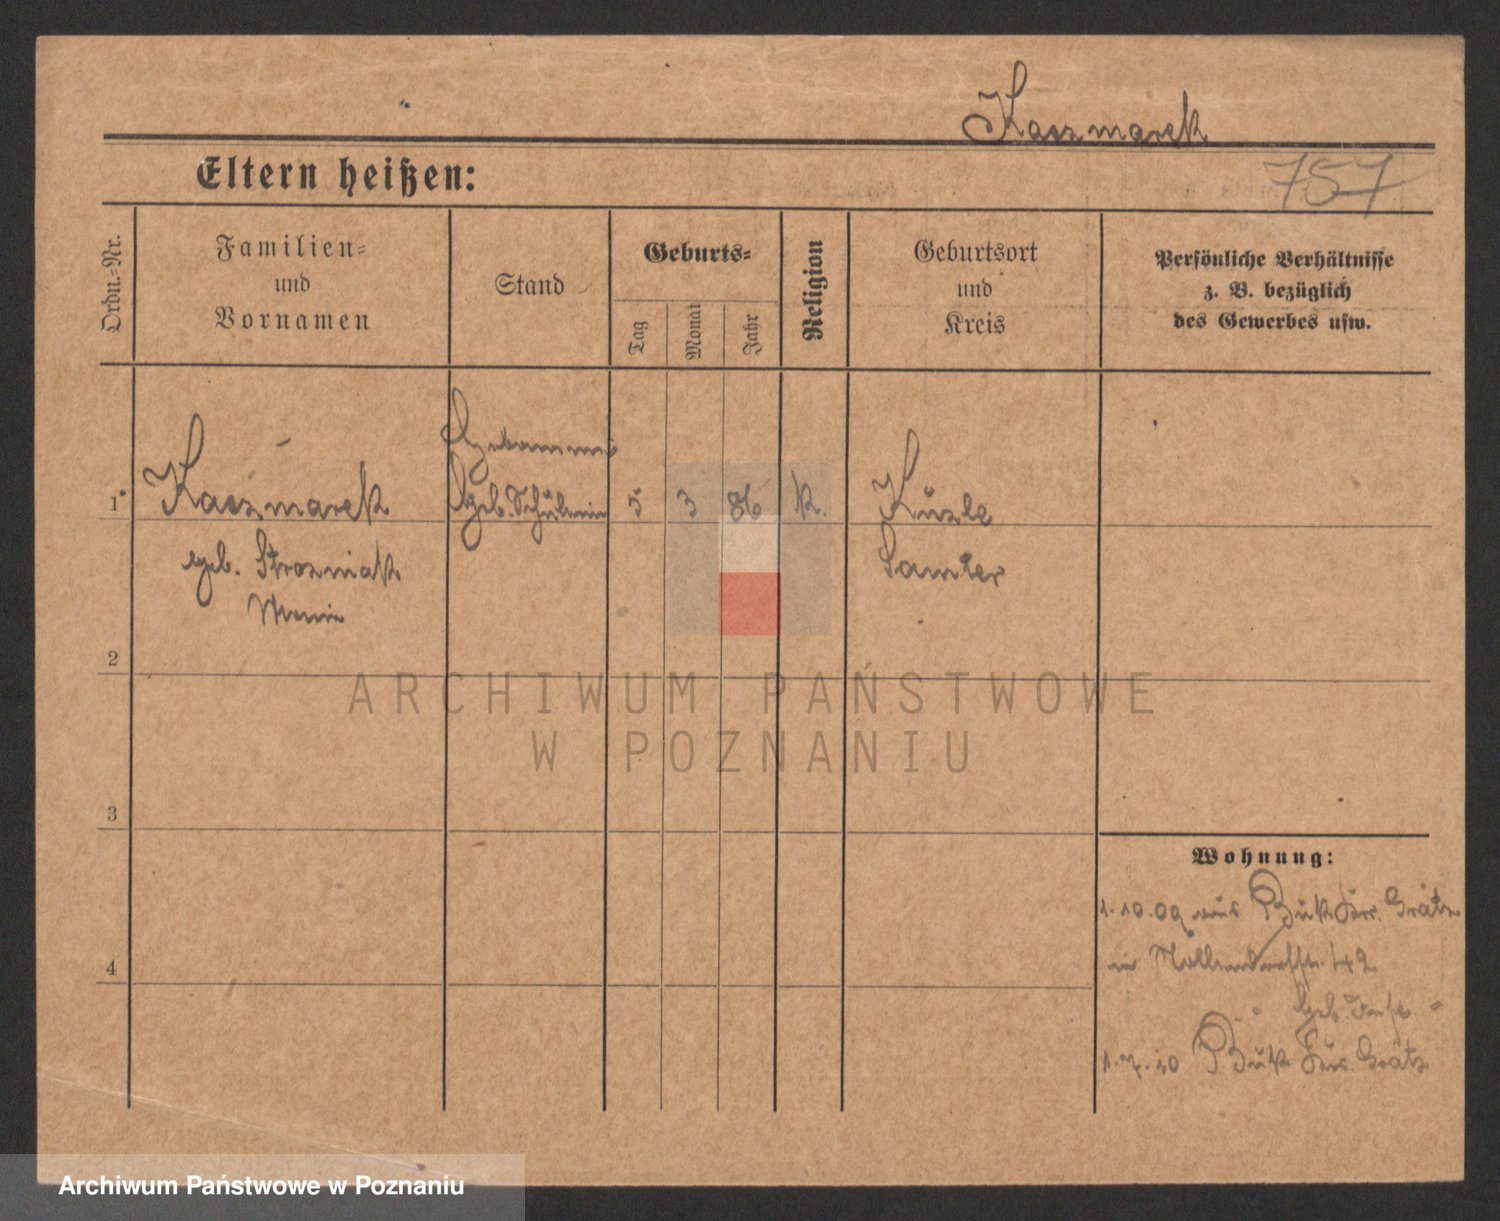 Kaczmarek
757
Eltern heißen:
Ordn.=Nr.
Familien=
und
Vornamen
Stand
Geburts=
Tag
Monat
Jahr
Religion
Geburtsort
und
Kreis
Persönliche Verhältnisse
z. B. bezüglich
des Gewerbes usw.
1
Kaczmarek
geb. Strozniak
Hebammen
5
3
86
k.
Kuzle
Samter
2
3
4
Wohnung:
1.10.09 aus Buk Kr. Grätz
in
42
1.7.10 Buk Kr. Grätz
ARCHIWUM PAŃSTWOWE
W POZNANIU
Archiwum Państwowe w Poznaniu